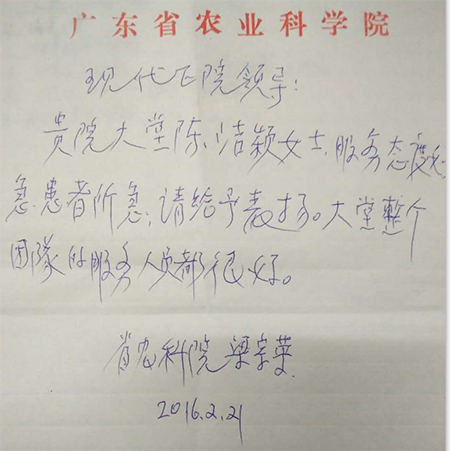 广东省农业科学院
现代医院领导:
贵院大堂陈洁颖女士,服务态度好,
急患者所急,请给予表扬。大堂整个
团隊的服务人员都很好。
省农科院 梁宗英
2016.2.21